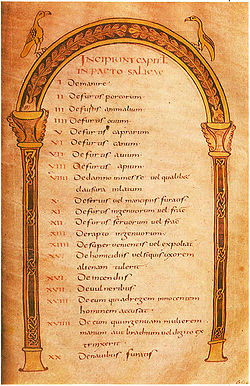 INCIPIUNT CAPIT
IN PACTO SALICAE
I De manire
II De furtis porcorum
III De furtis animalium
IIII De furtis ovium
V De furtis caprarum
VI De furtis canum
VII De furtis avium
VIII De furtis apium
VIIII De damno in messe vel qualibet
clausura inlatum
X De servis vel mancipiis furatis
XI De furtis ingenuorum vel frac
XII De furtis servorum vel frac
XIII De rapto ingenuorum
XIIII De super venientis vel expoliat
XV De homicidiis vel si quis uxorem
alienam tulerit
XVI De incendiis
XVII De vulneribus
XVIII De eum qui ad regem innocentem
hominem accusat
XVIIII De eum qui ingenuam mulierem
manum aut brachium vel digito ex
trinxerit
XX De navibus furatis